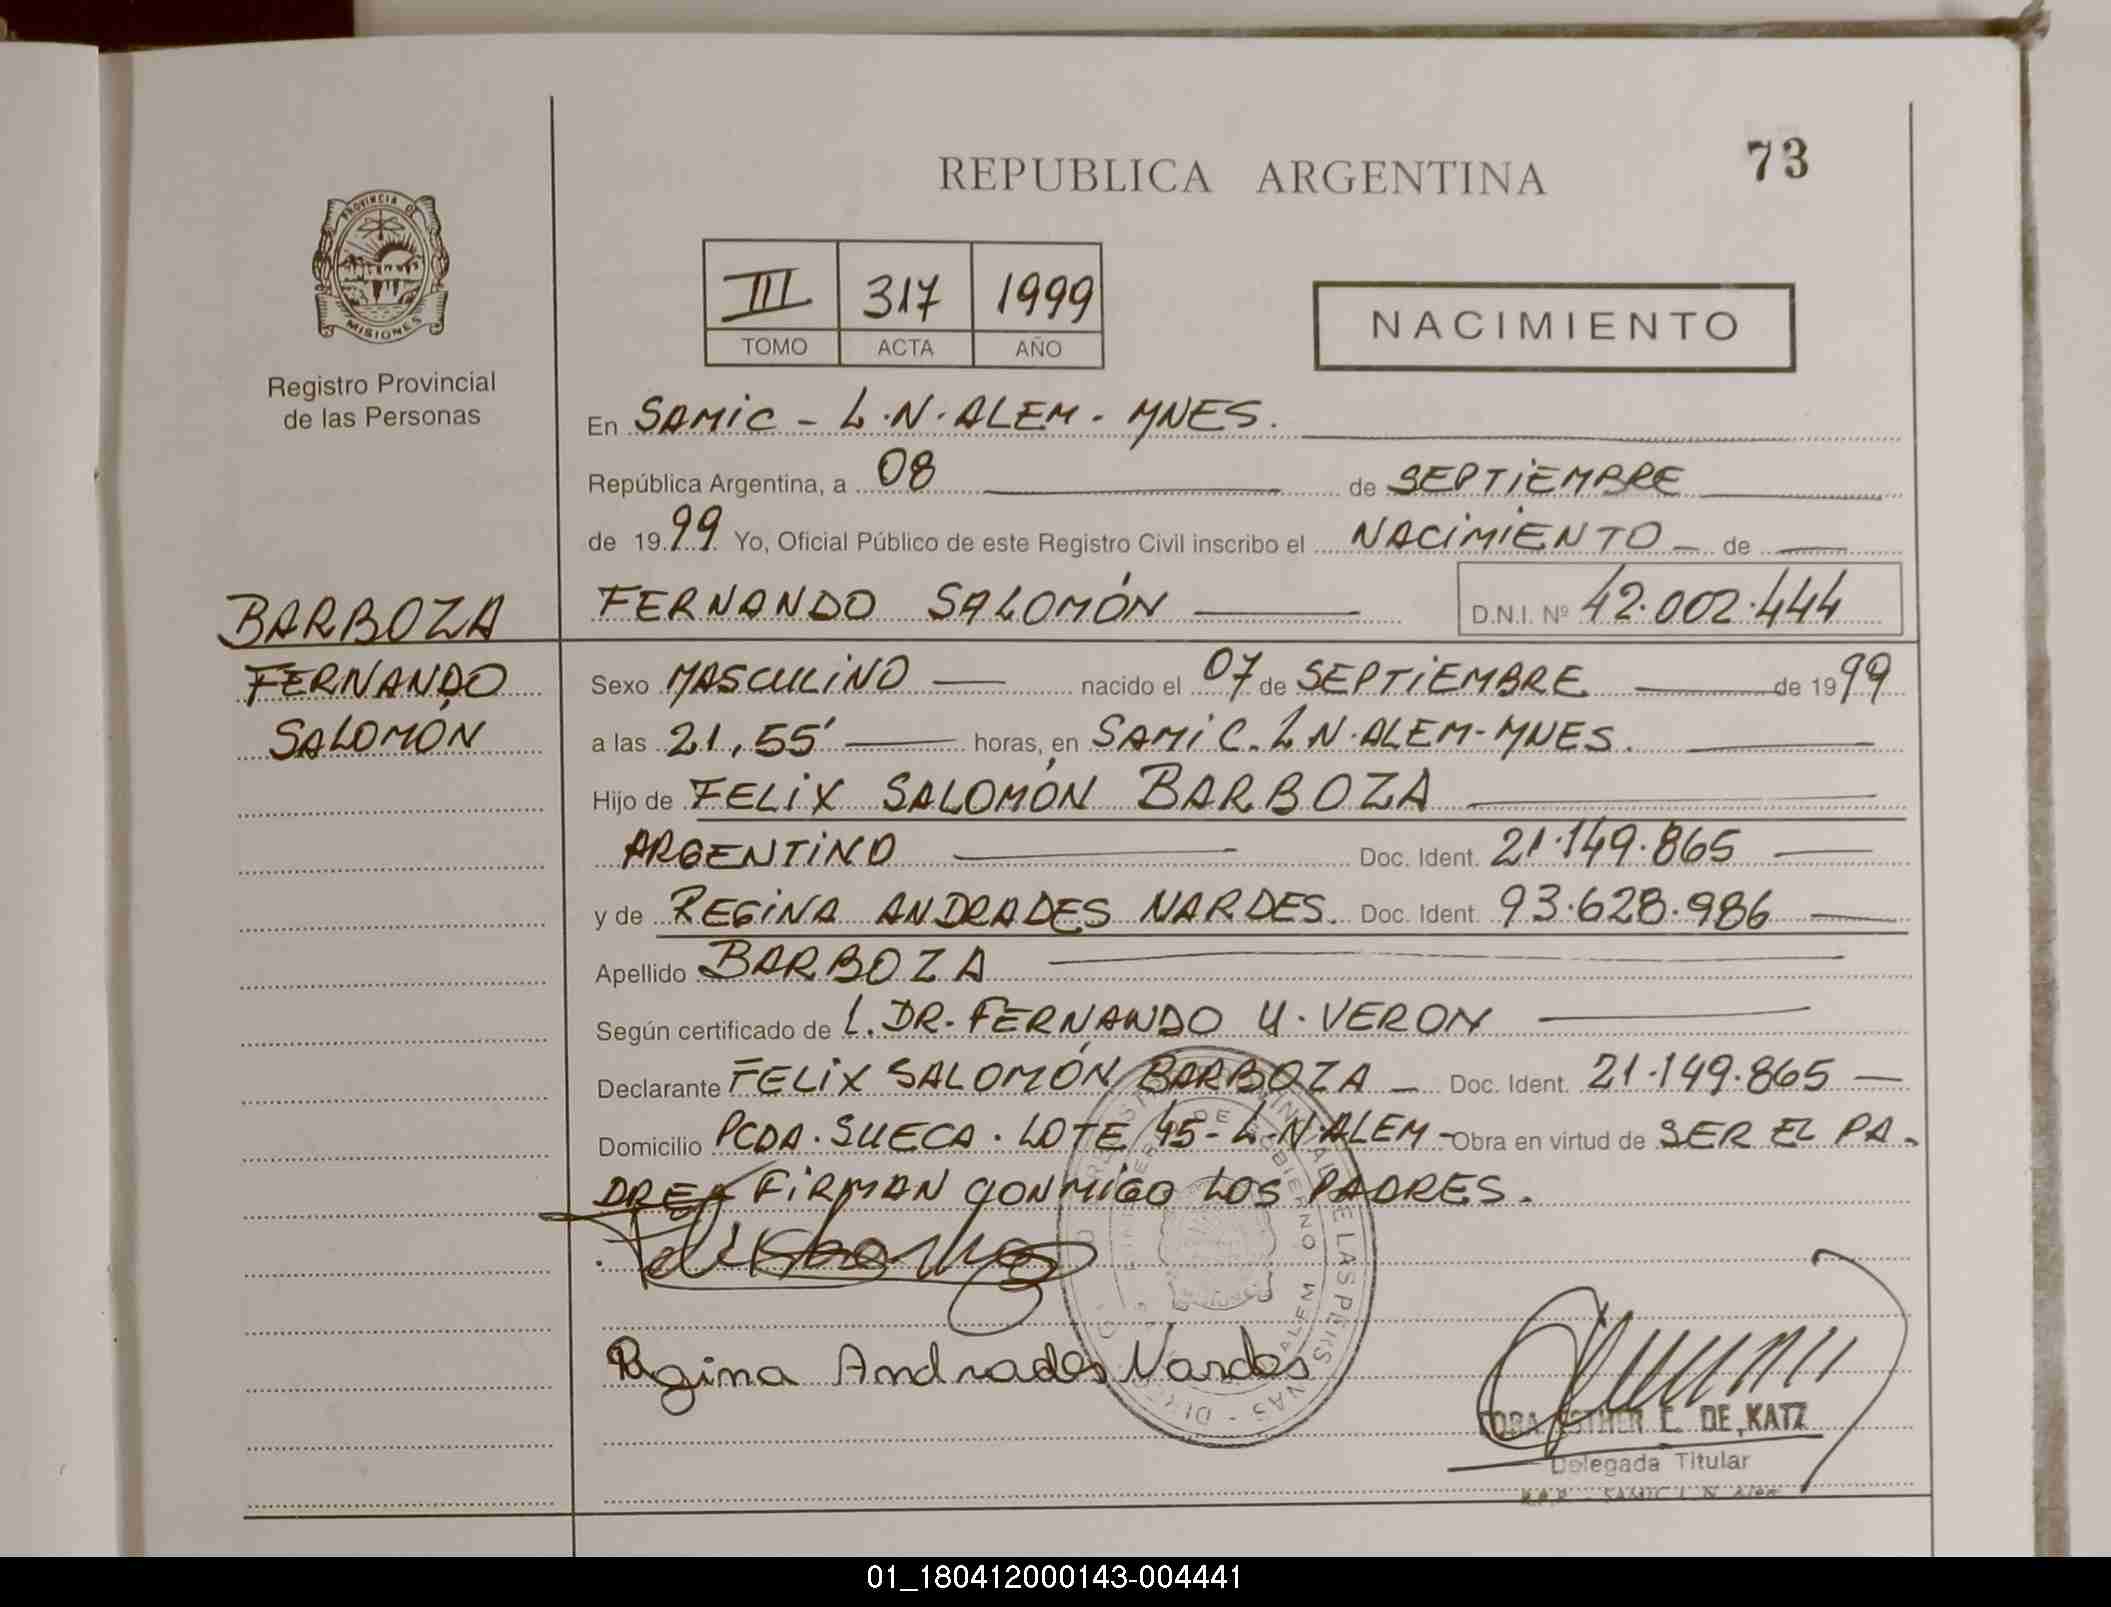 73
REPUBLICA ARGENTINA
PROVINCIA DE
MISIONES
Registro Provincial
de las Personas
III 317 1999
TOMO ACTA AÑO
NACIMIENTO
En SAMIC - L.N.ALEM - MNES.
República Argentina, a 08 de SEPTIEMBRE
de 1999 Yo, Oficial Público de este Registro Civil inscribo el NACIMIENTO de
FERNANDO SALOMÓN D.N.I. Nº 42.002.444
BARBOZA
FERNANDO
SALOMÓN
Sexo MASCULINO nacido el 07 de SEPTIEMBRE de 1999
a las 21,55' horas, en SAMIC. L N. ALEM - MNES.
Hijo de FELIX SALOMÓN BARBOZA
ARGENTINO Doc. Ident. 21.149.865
y de REGINA ANDRADES NARDES. Doc. Ident. 93.628.986
Apellido BARBOZA
Según certificado de L. DR. FERNANDO U. VERON
Declarante FELIX SALOMÓN BARBOZA Doc. Ident. 21.149.865
Domicilio PCDA. SUECA. LOTE 45 - L.N.ALEM - Obra en virtud de SER EL PA-
DRE FIRMAN CONMIGO LOS PADRES.
Regina Andrades Nardes
ESTHER E. DE KATZ
Delegada Titular
R.P.P. - SAMIC L. N. Alem
01_180412000143-004441